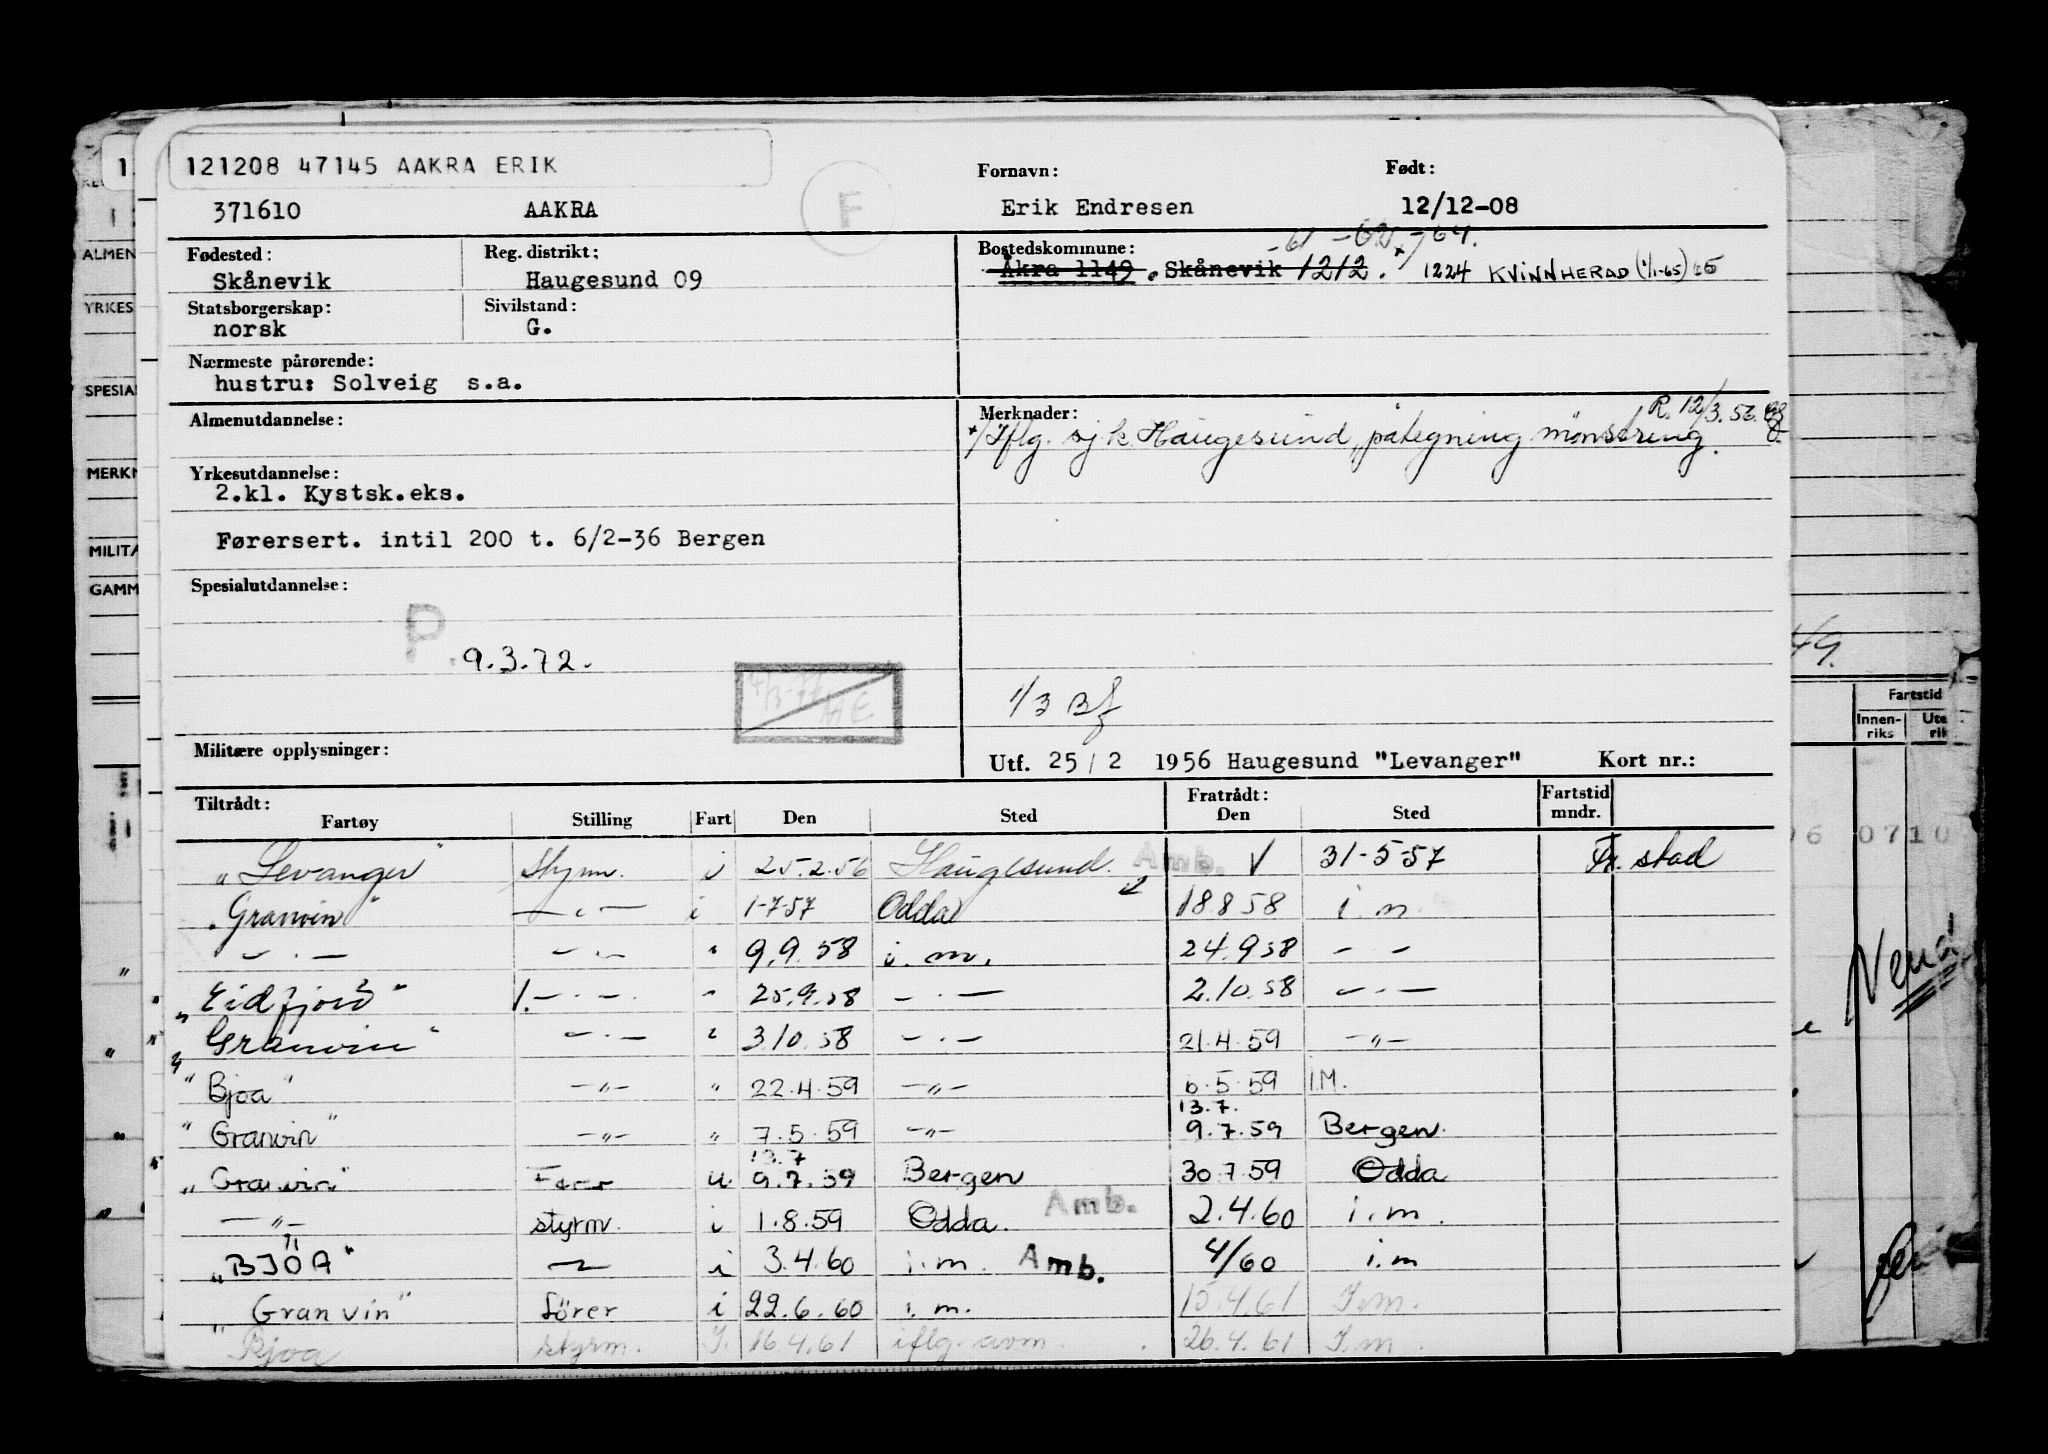 121208 47145 AAKRA ERIK
F
Fornavn:
Født:
371610 AAKRA Erik Endresen 12/12-08
Fødested: Reg. distrikt: Bostedskommune: -61 -62 -64.
Skånevik Haugesund 09 Åkra 1149. Skånevik 1212. 1224 KVINNHERAD (1/1-65)
Statsborgerskap: Sivilstand:
norsk G.
Nærmeste pårørende:
hustru: Solveig s.a.
Almenutdannelse: Merknader: R. 12/3.56.
x/ Iflg. sj.k. Haugesund, påtegning mønstring.
Yrkesutdannelse:
2.kl. Kystsk.eks.
Førersert. intil 200 t. 6/2-36 Bergen
Spesialutdannelse:
P. 9.3.72.
1/3 Bf
Militære opplysninger: Utf. 25/2 1956 Haugesund "Levanger" Kort nr.:
Tiltrådt: Fratrådt: Fartstid
Fartøy Stilling Fart Den Sted Den Sted mndr.
"Levanger" styrm. i 25.2.56 Haugesund. Amb. 31-5-57 Fr.stad
"Granvin" — " — i 1-7-57 Odda 18.8.58 i.m.
— " — — " — " 9.9.58 i.m. 24.9.58 — " —
"Eidfjord" 1. — " — " 25.9.58 — " — 2.10.58 — " —
"Granvin" — " — " 3.10.58 — " — 21.4.59 — " —
"Bjoa" — " — " 22.4.59 — " — 6.5.59 I.M.
13.7.
"Granvin" — " — " 7.5.59 — " — 9.7.59 Bergen
13.7
"Granvin" u 9.7.59 Bergen 30.7.59 Odda
— " — styrm. i 1.8.59 Odda. Amb. 2.4.60 i.m.
"BJOA" — " — i 3.4.60 i.m. Amb. 4/60 i.m
"Granvin" fører i 22.6.60 i.m. 15.4.61 I.m.
"Bjoa styrm. I. 16.4.61 iflg. avm. 26.4.61 I.m
ALMEN
YRKES
SPESIAL
MERKN
MILITÆ
GAMM
Fartstid
Innen-
riks
0710